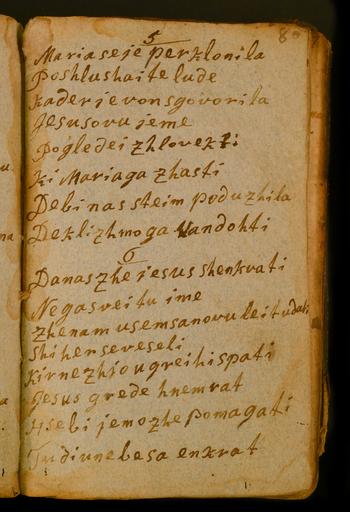 5 80
Maria se je perklonila
Poshlushaite lude
kader je von sgovorila
Jesusovu jeme
Pogledei zhlovek
ki Mariaga zhasti
Debi nas steim poduzhila
Deklizhmoga
6
Danas zhe jesus shenkvati
Negasveitu ime
zhenam usem sa novu leitu dati
shihenseveseli
kirnezhjo ugreihi spati
Jesus grede hnemrat
Hsebi jemo zhe pomagati
Tudi unebesa enkrat